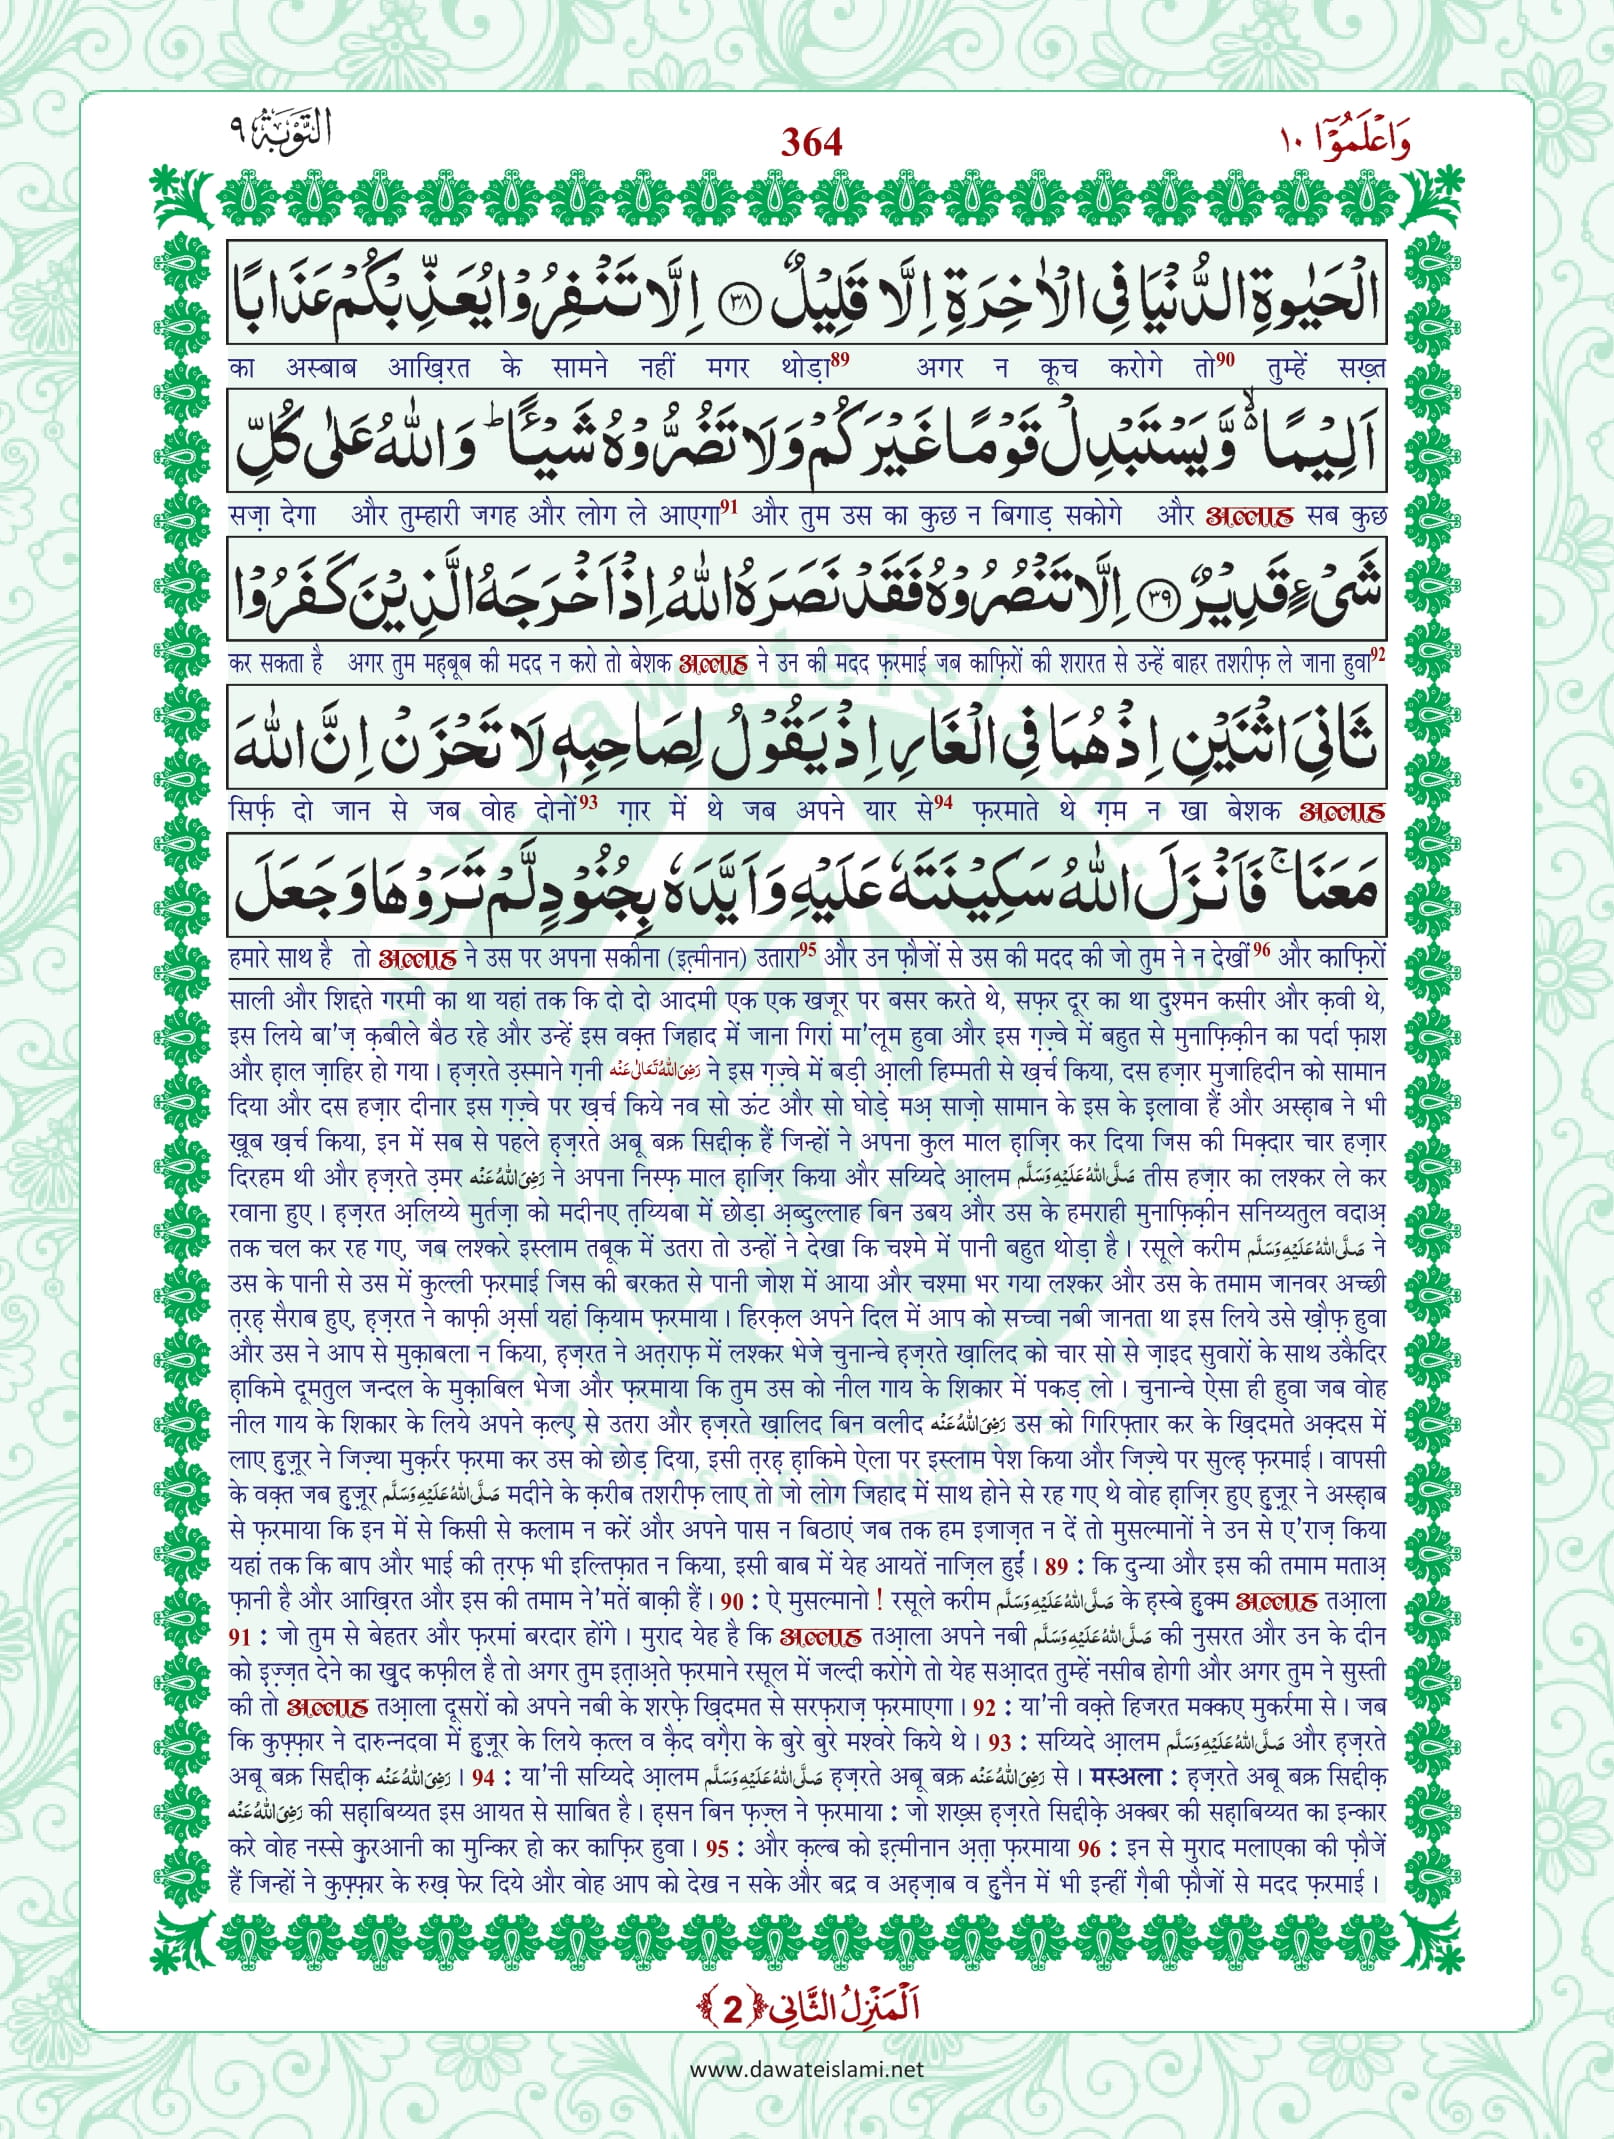 وَاعْلَمُوْۤا ١٠
364
اَلتَّوْبَة ٩
الْحَیٰوةِ الدُّنْیَا فِی الْاٰخِرَةِ اِلَّا قَلِیْلٌ ﴿۳۸﴾ اِلَّا تَنْفِرُوْا یُعَذِّبْكُمْ عَذَابًا
का अस्बाब आख़िरत के सामने नहीं मगर थोड़ा89 अगर न कूच करोगे तो90 तुम्हें सख़्त
اَلِیْمًا ۙ۬ وَّ یَسْتَبْدِلْ قَوْمًا غَیْرَكُمْ وَ لَا تَضُرُّوْهُ شَیْـًٔا ؕ وَ اللّٰهُ عَلٰى كُلِّ
सज़ा देगा और तुम्हारी जगह और लोग ले आएगा91 और तुम उस का कुछ न बिगाड़ सकोगे और अल्लाह सब कुछ
شَیْءٍ قَدِیْرٌ ﴿۳۹﴾ اِلَّا تَنْصُرُوْهُ فَقَدْ نَصَرَهُ اللّٰهُ اِذْ اَخْرَجَهُ الَّذِیْنَ كَفَرُوْا
कर सकता है अगर तुम महबूब की मदद न करो तो बेशक अल्लाह ने उन की मदद फ़रमाई जब काफ़िरों की शरारत से उन्हें बाहर तशरीफ़ ले जाना हुवा92
ثَانِیَ اثْنَیْنِ اِذْ هُمَا فِی الْغَارِ اِذْ یَقُوْلُ لِصَاحِبِهٖ لَا تَحْزَنْ اِنَّ اللّٰهَ
सिर्फ़ दो जान से जब वोह दोनों93 ग़ार में थे जब अपने यार से94 फ़रमाते थे ग़म न खा बेशक अल्लाह
مَعَنَا ۚ فَاَنْزَلَ اللّٰهُ سَكِیْنَتَهٗ عَلَیْهِ وَ اَیَّدَهٗ بِجُنُوْدٍ لَّمْ تَرَوْهَا وَ جَعَلَ
हमारे साथ है तो अल्लाह ने उस पर अपना सकीना (इत़्मीनान) उतारा95 और उन फ़ौजों से उस की मदद की जो तुम ने न देखीं96 और काफ़िरों
साली और शिद्दते गरमी का था यहां तक कि दो दो आदमी एक एक खजूर पर बसर करते थे, सफ़र दूर का था दुश्मन कसीर और क़वी थे,
इस लिये बा'ज़ क़बीले बैठ रहे और उन्हें इस वक़्त जिहाद में जाना गिरां मा'लूम हुवा और इस ग़ज़्वे में बहुत से मुनाफ़िक़ीन का पर्दा फ़ाश
और ह़ाल ज़ाहिर हो गया। ह़ज़रते उ़स्माने ग़नी رَضِیَ اللّٰهُ تَعَالٰی عَنْه ने इस ग़ज़्वे में बड़ी आ़ली हिम्मती से ख़र्च किया, दस हज़ार मुजाहिदीन को सामान
दिया और दस हज़ार दीनार इस ग़ज़्वे पर ख़र्च किये नव सो ऊंट और सो घोड़े मअ़ साज़ो सामान के इस के इ़लावा हैं और अस्ह़ाब ने भी
ख़ूब ख़र्च किया, इन में सब से पहले ह़ज़रते अबू बक्र सिद्दीक़ हैं जिन्हों ने अपना कुल माल ह़ाज़िर कर दिया जिस की मिक़्दार चार हज़ार
दिरहम थी और ह़ज़रते उ़मर رَضِیَ اللّٰهُ عَنْه ने अपना निस्फ़ माल ह़ाज़िर किया और सय्यिदे आ़लम صَلَّی اللّٰهُ عَلَیْهِ وَسَلَّم तीस हज़ार का लश्कर ले कर
रवाना हुए। ह़ज़रत अ़लिय्ये मुर्तज़ा को मदीनए त़य्यिबा में छोड़ा अ़ब्दुल्लाह बिन उबय और उस के हमराही मुनाफ़िक़ीन सनिय्यतुल वदाअ़
तक चल कर रह गए, जब लश्करे इस्लाम तबूक में उतरा तो उन्हों ने देखा कि चश्मे में पानी बहुत थोड़ा है। रसूले करीम صَلَّی اللّٰهُ عَلَیْهِ وَسَلَّم ने
उस के पानी से उस में कुल्ली फ़रमाई जिस की बरकत से पानी जोश में आया और चश्मा भर गया लश्कर और उस के तमाम जानवर अच्छी
त़रह़ सैराब हुए, ह़ज़रत ने काफ़ी अ़र्सा यहां क़ियाम फ़रमाया। हिरक़ल अपने दिल में आप को सच्चा नबी जानता था इस लिये उसे ख़ौफ़ हुवा
और उस ने आप से मुक़ाबला न किया, ह़ज़रत ने अत़राफ़ में लश्कर भेजे चुनान्चे ह़ज़रते ख़ालिद को चार सो से ज़ाइद सुवारों के साथ उकैदिर
ह़ाकिमे दूमतुल जन्दल के मुक़ाबिल भेजा और फ़रमाया कि तुम उस को नील गाय के शिकार में पकड़ लो। चुनान्चे ऐसा ही हुवा जब वोह
नील गाय के शिकार के लिये अपने क़ल्ए़ से उतरा और ह़ज़रते ख़ालिद बिन वलीद رَضِیَ اللّٰهُ عَنْه उस को गिरिफ़्तार कर के ख़िदमते अक़्दस में
लाए हु़ज़ूर ने जिज़्या मुक़र्रर फ़रमा कर उस को छोड़ दिया, इसी त़रह़ ह़ाकिमे ऐला पर इस्लाम पेश किया और जिज़्ये पर सुल्ह़ फ़रमाई। वापसी
के वक़्त जब हु़ज़ूर صَلَّی اللّٰهُ عَلَیْهِ وَسَلَّم मदीने के क़रीब तशरीफ़ लाए तो जो लोग जिहाद में साथ होने से रह गए थे वोह ह़ाज़िर हुए हु़ज़ूर ने अस्ह़ाब
से फ़रमाया कि इन में से किसी से कलाम न करें और अपने पास न बिठाएं जब तक हम इजाज़त न दें तो मुसल्मानों ने उन से ए'राज़ किया
यहां तक कि बाप और भाई की त़रफ़ भी इल्तिफ़ात न किया, इसी बाब में येह आयतें नाज़िल हुईं। 89 : कि दुन्या और इस की तमाम मताअ़
फ़ानी है और आख़िरत और इस की तमाम ने'मतें बाक़ी हैं। 90 : ऐ मुसल्मानो ! रसूले करीम صَلَّی اللّٰهُ عَلَیْهِ وَسَلَّم के ह़स्बे हु़क्म अल्लाह तआ़ला
91 : जो तुम से बेहतर और फ़रमां बरदार होंगे। मुराद येह है कि अल्लाह तआ़ला अपने नबी صَلَّی اللّٰهُ عَلَیْهِ وَسَلَّم की नुसरत और उन के दीन
को इ़ज़्ज़त देने का खुद कफ़ील है तो अगर तुम इत़ाअ़ते फ़रमाने रसूल में जल्दी करोगे तो येह सआ़दत तुम्हें नसीब होगी और अगर तुम ने सुस्ती
की तो अल्लाह तआ़ला दूसरों को अपने नबी के शरफ़े ख़िदमत से सरफ़राज़ फ़रमाएगा। 92 : या'नी वक़्ते हिजरत मक्कए मुकर्रमा से। जब
कि कुफ़्फ़ार ने दारुन्नदवा में हु़ज़ूर के लिये क़त्ल व क़ैद वग़ैरा के बुरे बुरे मश्वरे किये थे। 93 : सय्यिदे आ़लम صَلَّی اللّٰهُ عَلَیْهِ وَسَلَّم और ह़ज़रते
अबू बक्र सिद्दीक़ رَضِیَ اللّٰهُ عَنْه। 94 : या'नी सय्यिदे आ़लम صَلَّی اللّٰهُ عَلَیْهِ وَسَلَّم ह़ज़रते अबू बक्र رَضِیَ اللّٰهُ عَنْه से। मस्अला : ह़ज़रते अबू बक्र सिद्दीक़
رَضِیَ اللّٰهُ عَنْه की सह़ाबिय्यत इस आयत से साबित है। ह़सन बिन फ़ज़्ल ने फ़रमाया : जो शख़्स ह़ज़रते सिद्दीक़े अक्बर की सह़ाबिय्यत का इन्कार
करे वोह नस्से क़ुरआनी का मुन्किर हो कर काफ़िर हुवा। 95 : और क़ल्ब को इत़्मीनान अ़त़ा फ़रमाया 96 : इन से मुराद मलाएका की फ़ौजें
हैं जिन्हों ने कुफ़्फ़ार के रुख़ फेर दिये और वोह आप को देख न सके और बद्र व अह़ज़ाब व हु़नैन में भी इन्हीं ग़ैबी फ़ौजों से मदद फ़रमाई।
اَلْمَنْزِلُ الثَّانِی ﴿2﴾
www.dawateislami.net